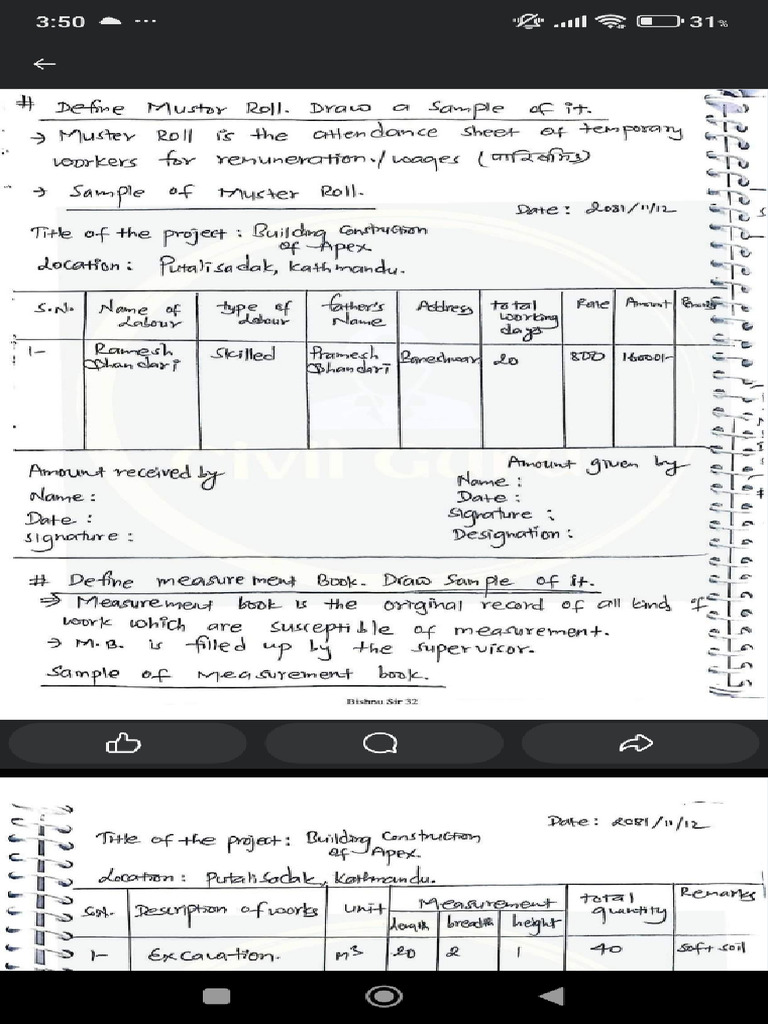 3:50
31%
# Define Mustor Roll. Draw a Sample of it.
→ Muster Roll is the attendance sheet of temporary
workers for remuneration./wages (पारिश्रमिक)
→ Sample of Muster Roll.
Date: 2081/11/12
Title of the project: Building Constrution
of Apex
Location: Putalisadak, Kathmandu.
S.N. Name of Labour type of Labour father's Name Address total working days Rate Amount
1- Ramesh Bhandari Skilled Pramesh Bhandari Baneshwar 20 800 16000/-
Amount received by
Name:
Date:
Signature:
Amount given by
Name:
Date:
Signature:
Designation:
# Define measurement Book. Draw Sample of it.
⇒ Measurement book is the original record of all kind of
work which are susceptible of measurement.
→ M.B. is filled up by the supervisor.
Sample of Measurement book.
Bishnu Sir 32
Date: 2081/11/12
Title of the project: Building Construction
of Apex.
Location: Putalisadak, Kathmandu.
S.N. Description of works Unit Measurement total quantity Remarks
length breadth height
1- Excavation. M³ 20 2 1 40 soft soil